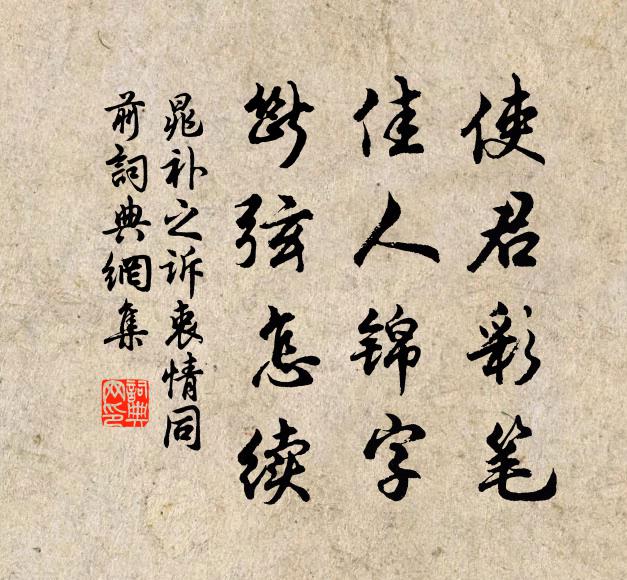 使君彩笔
佳人锦字
断弦怎续
晁补之诉衷情同
前詞典網集
詞典
网印